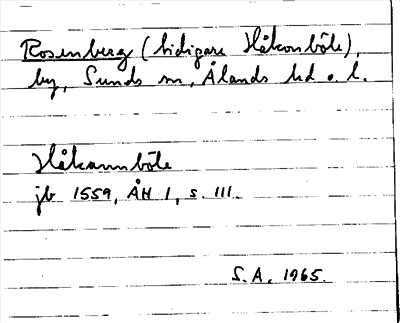 Rosenberg (tidigare Håkonböle),
by, Sunds sn, Ålands hd o. l.
Håkannböle
jb 1559, ÅH 1, s. 111.
S.A. 1965.